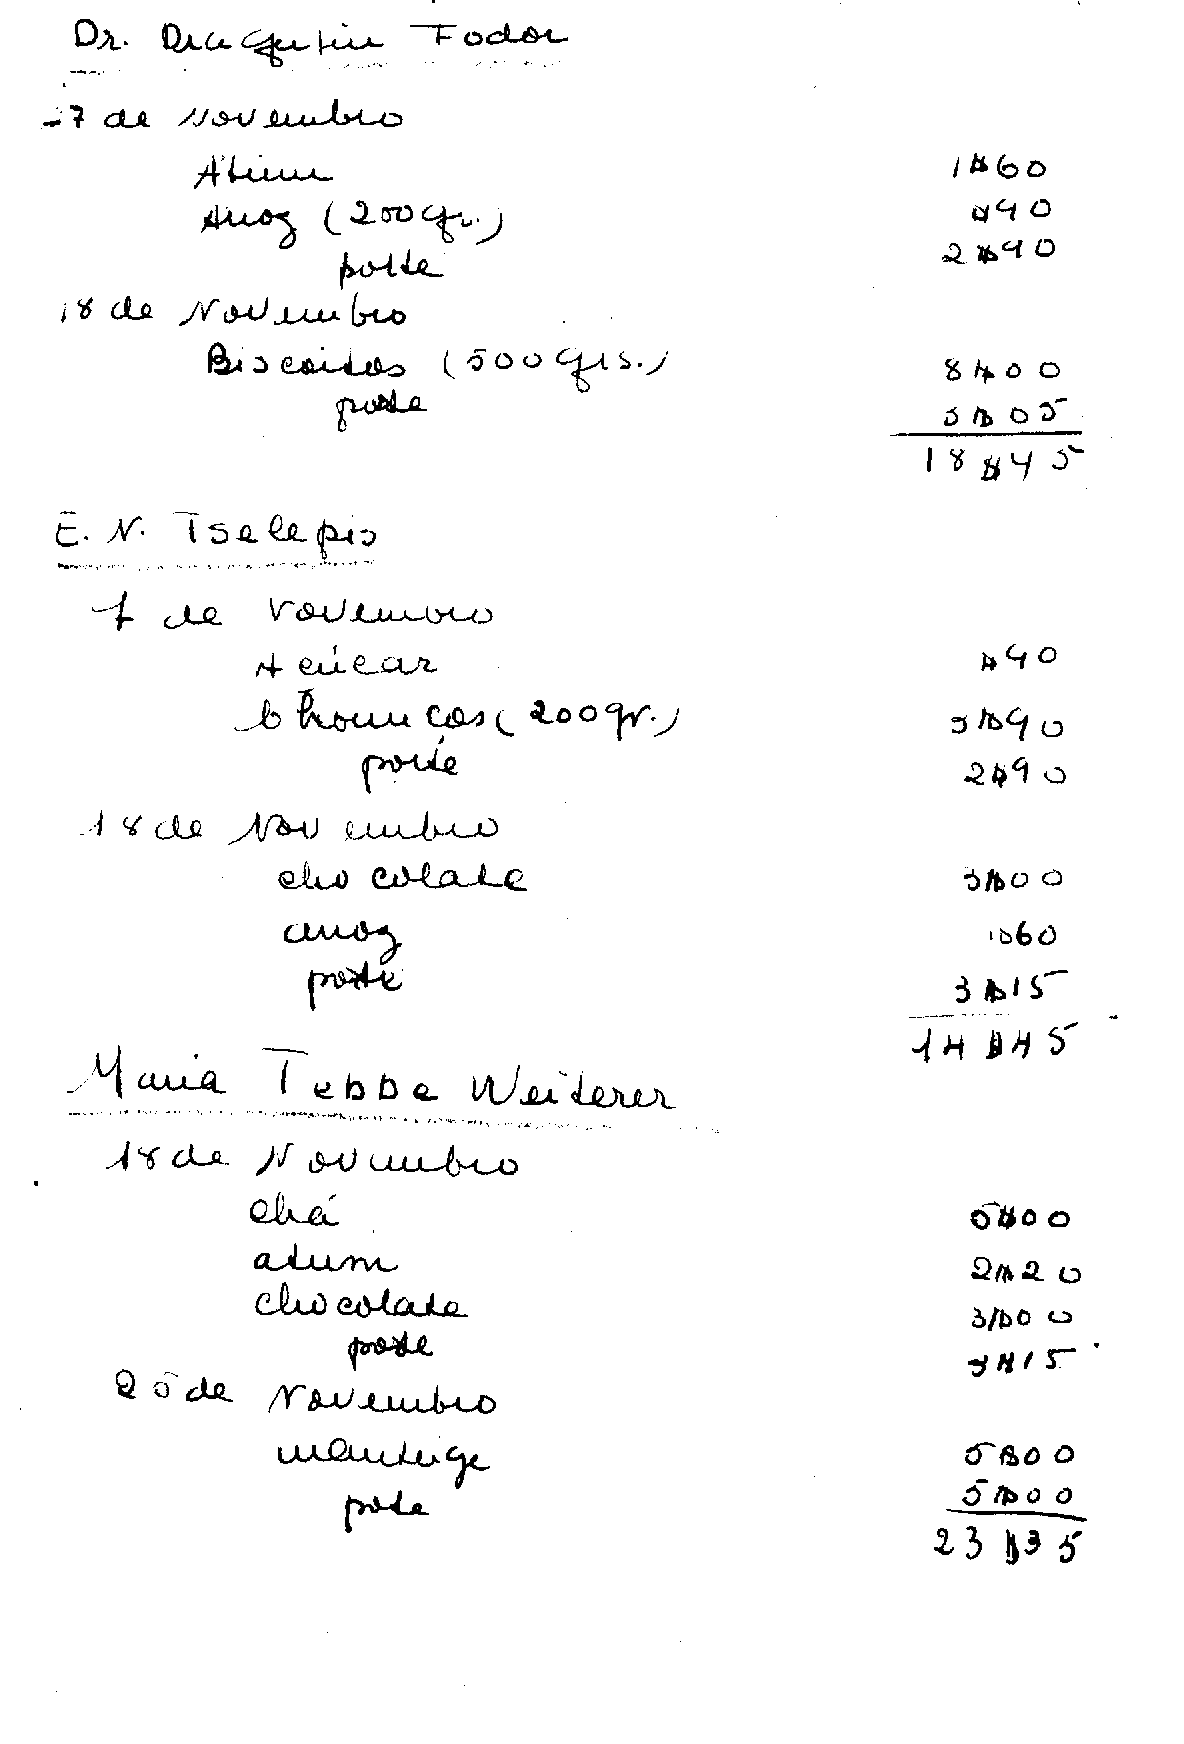 Dr. Dragutin Fodor
-7 de Novembro
Atum 1$60
Arroz (200gr.) $90
porte 2$90
18 de Novembro
Biscoitos (500grs.) 8$00
porte 5$05
18$45
E. N. Tselepis
7 de Novembro
Açúcar $90
Chouriços (200gr.) 3$90
porte 2$90
18 de Novembro
chocolate 3$00
arroz $60
porte 3$15
14$45
Maria Tebbe Weiterer
18 de Novembro
chá 5$00
atum 2$20
chocolate 3$00
porte 3$15
25 de Novembro
manteiga 5$00
porte 5$00
23$35